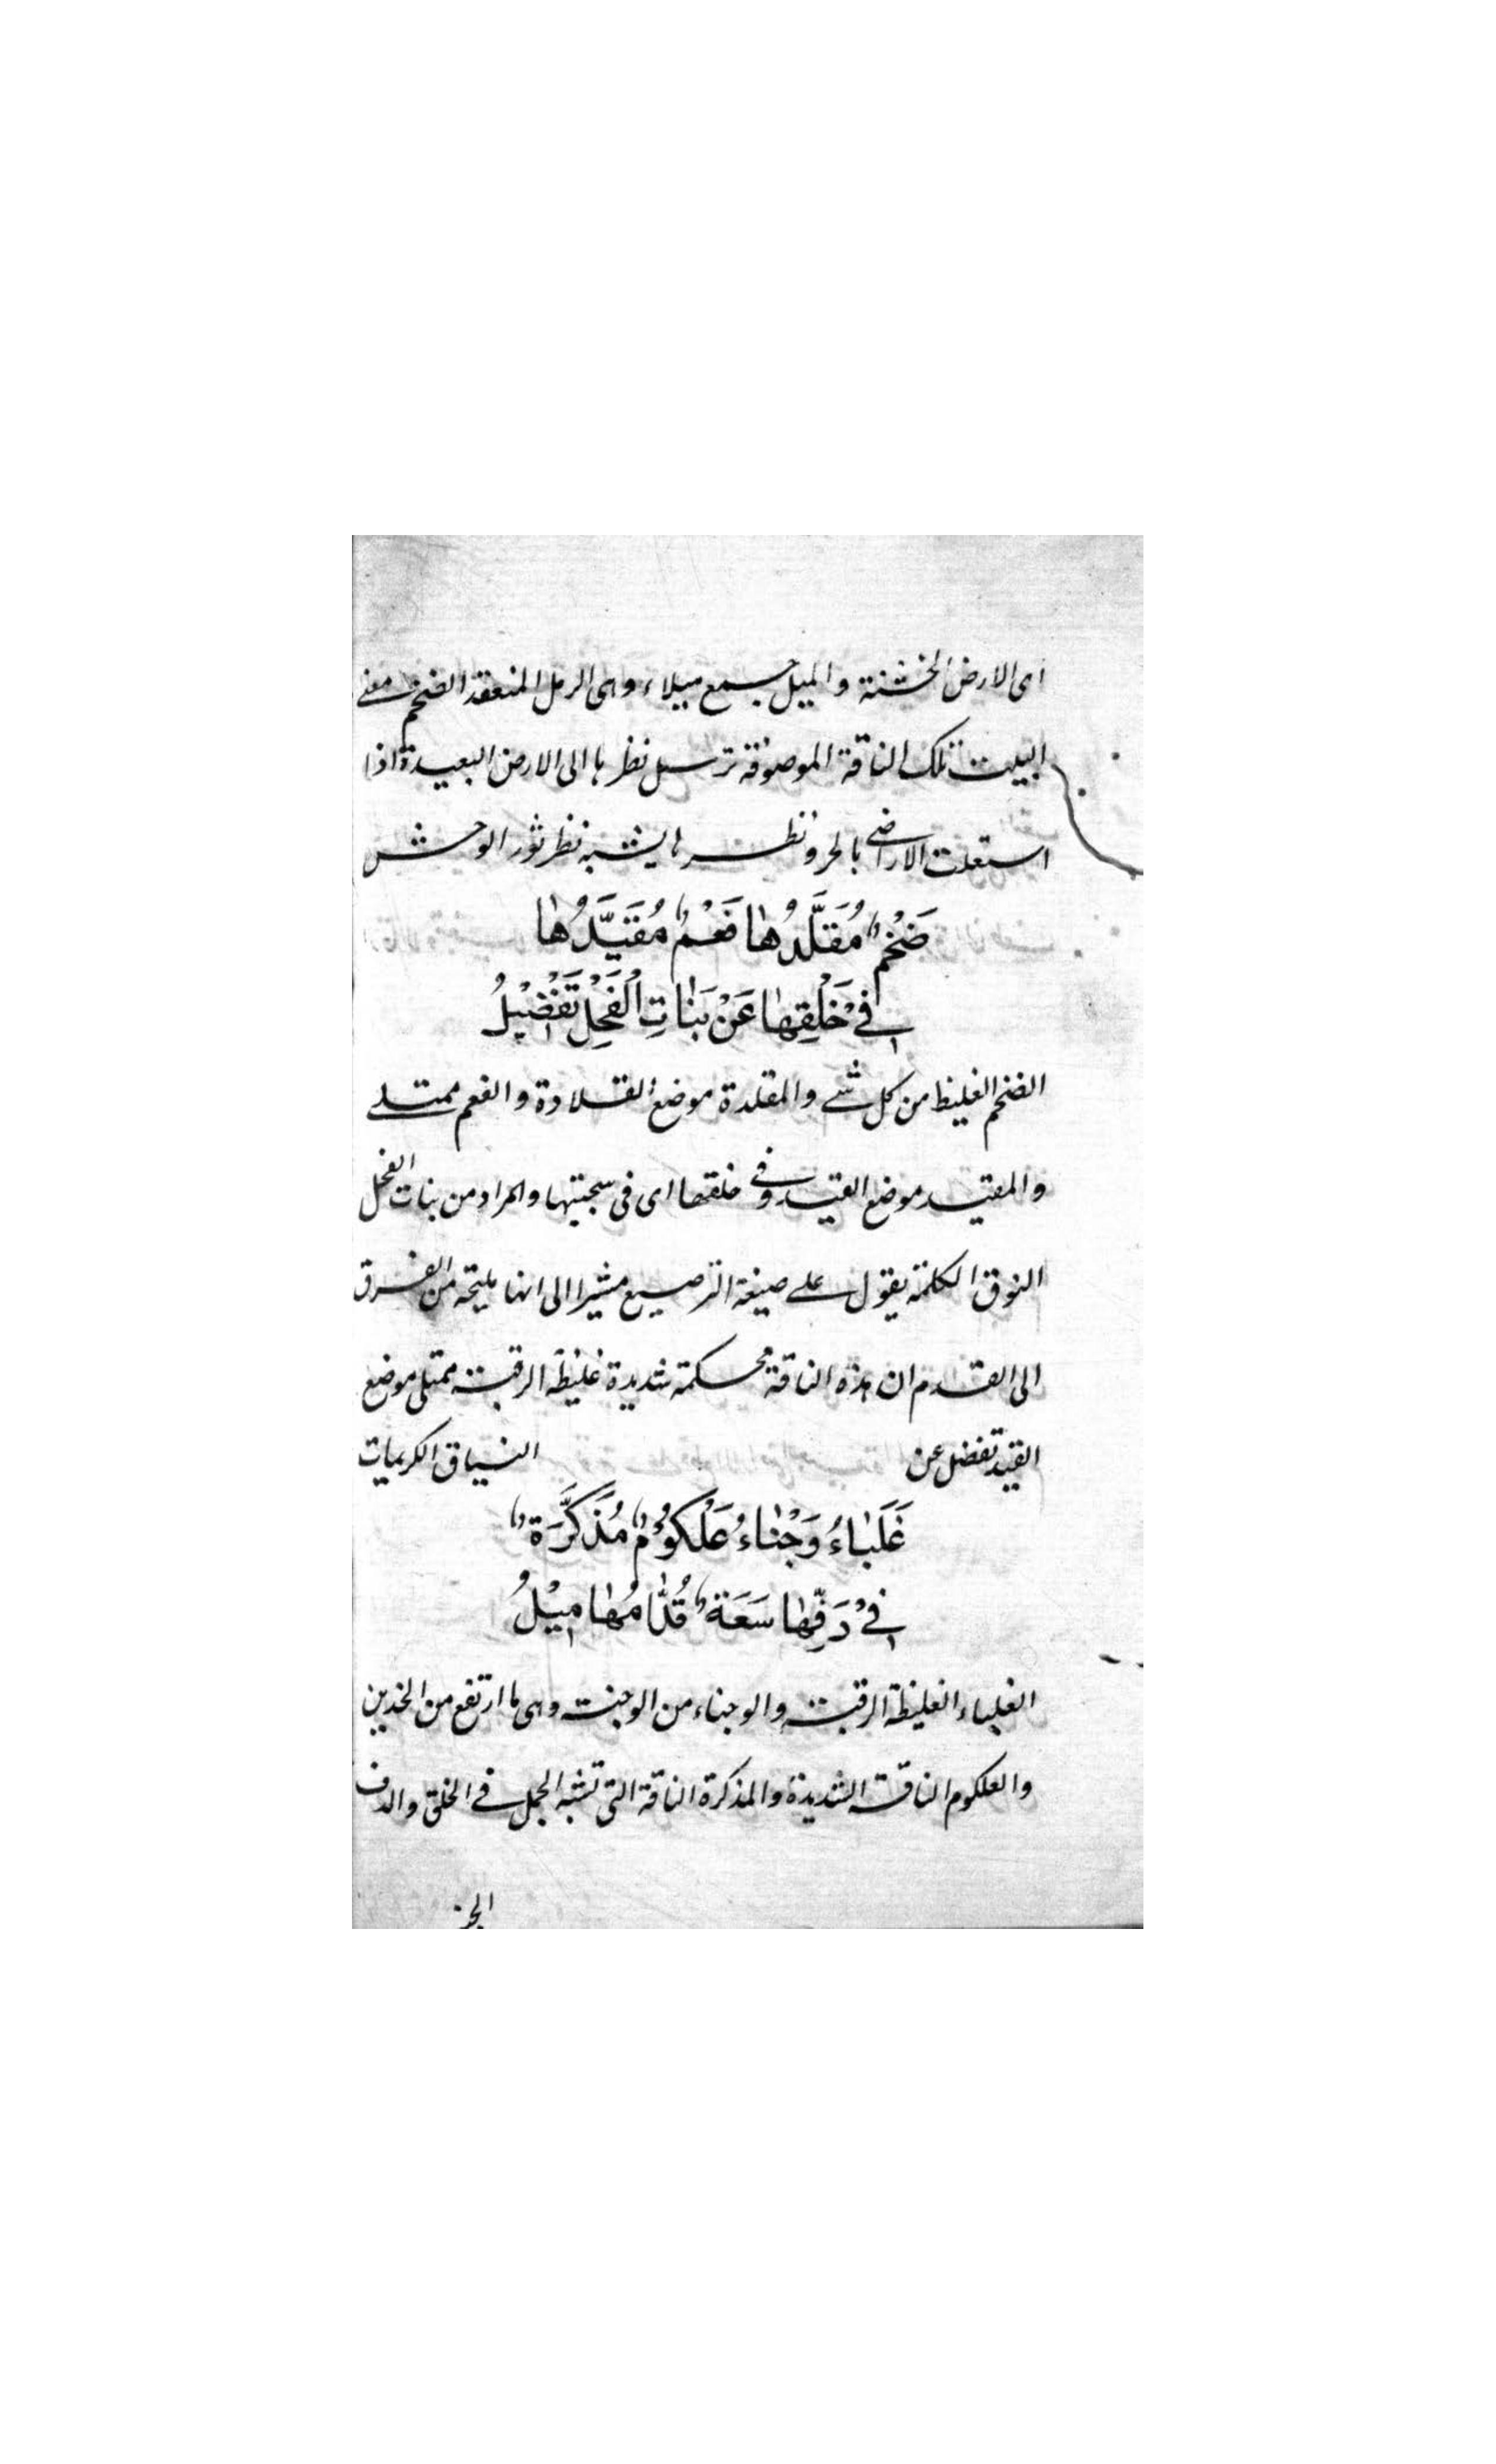 اى الارض الخشنة والميل جمع ميلاء وهى الرمل المنعقد الضخم معنى
البيت تلك الناقة الموصوفة ترسل نظرها الى الارض البعيدة اذا
استعلت الاراضى بالحر ونظرها يشبه نظر ثور الوحش
ضَخْمٌ مُقَلَّدُهَا فَعْمٌ مُقَيَّدُهَا
فِيْ خَلْقِهَا عَنْ بَنَاتِ الْفَحْلِ تَفْضِيْلُ
الضخم الغليظ من كل شے والمقلدة موضع القلادة والفعم ممتلے
والمقيد موضع القيد وفى خلقها اى فى سجيتها والمراد من بنات الفحل
النوق الكلمة يقول على صيغة الترصيع مشيرا الى انها مليحة من الفرق
الى القدم ان هذه الناقة محكمة شديدة غليظة الرقبة ممتلى موضع
القيد تفضل عن النياق الكريمات
غَلَبَاءُ وَجْنَاءُ عَلْكُوْمٌ مُذَكَّرَةٌ
فِيْ دَفِّهَا سَعَةٌ قُدَّامُهَا مِيْلُ
الغلباء الغليظة الرقبة والوجناء من الوجنت وهى ما ارتفع من الخدين
والعلكوم الناقة الشديدة والمذكرة الناقة التى تشبه الجمل فے الخلق والدف
الجنب